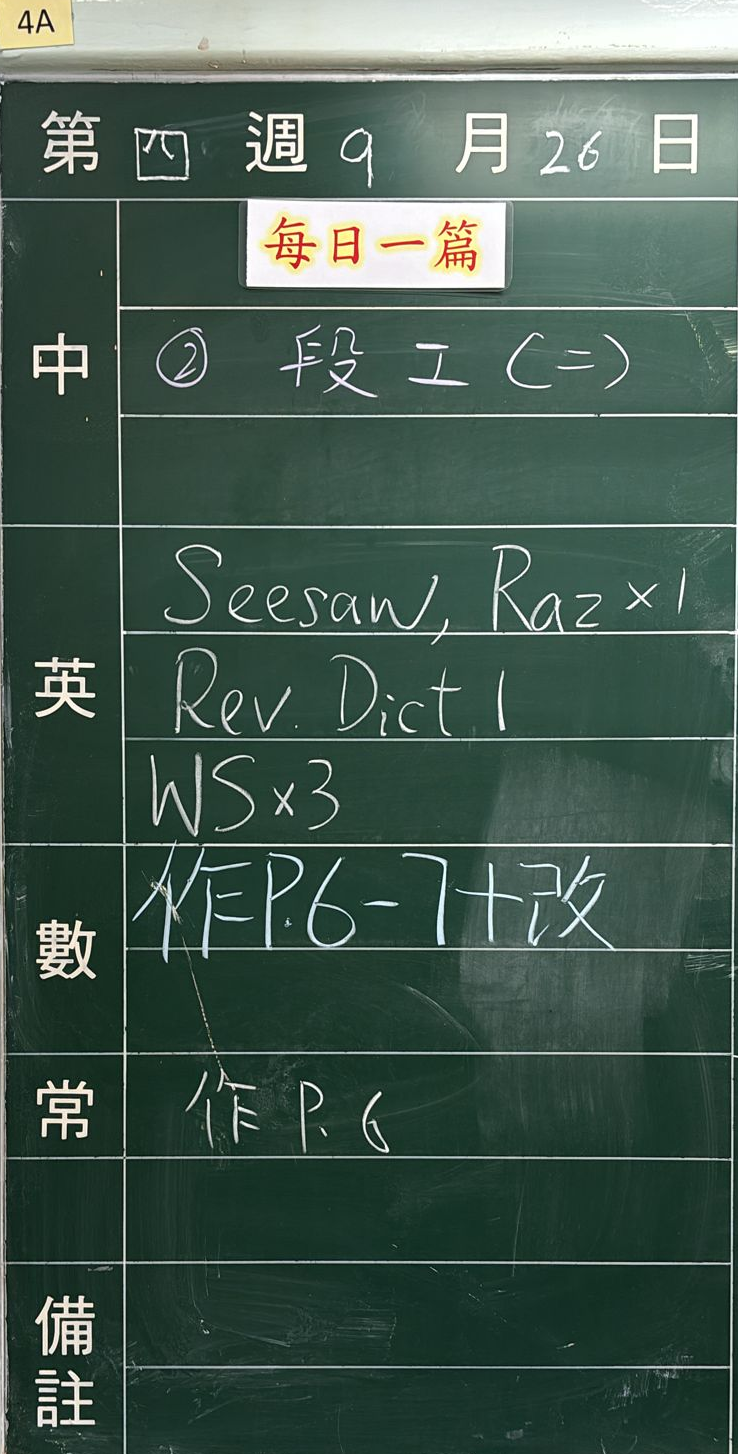 4A
第四週9月26日
每日一篇
中
② 段工(二)
英
Seesaw, Raz×1
Rev. Dict 1
WS×3
數
作P.6-7+改
常
作P.6
備註